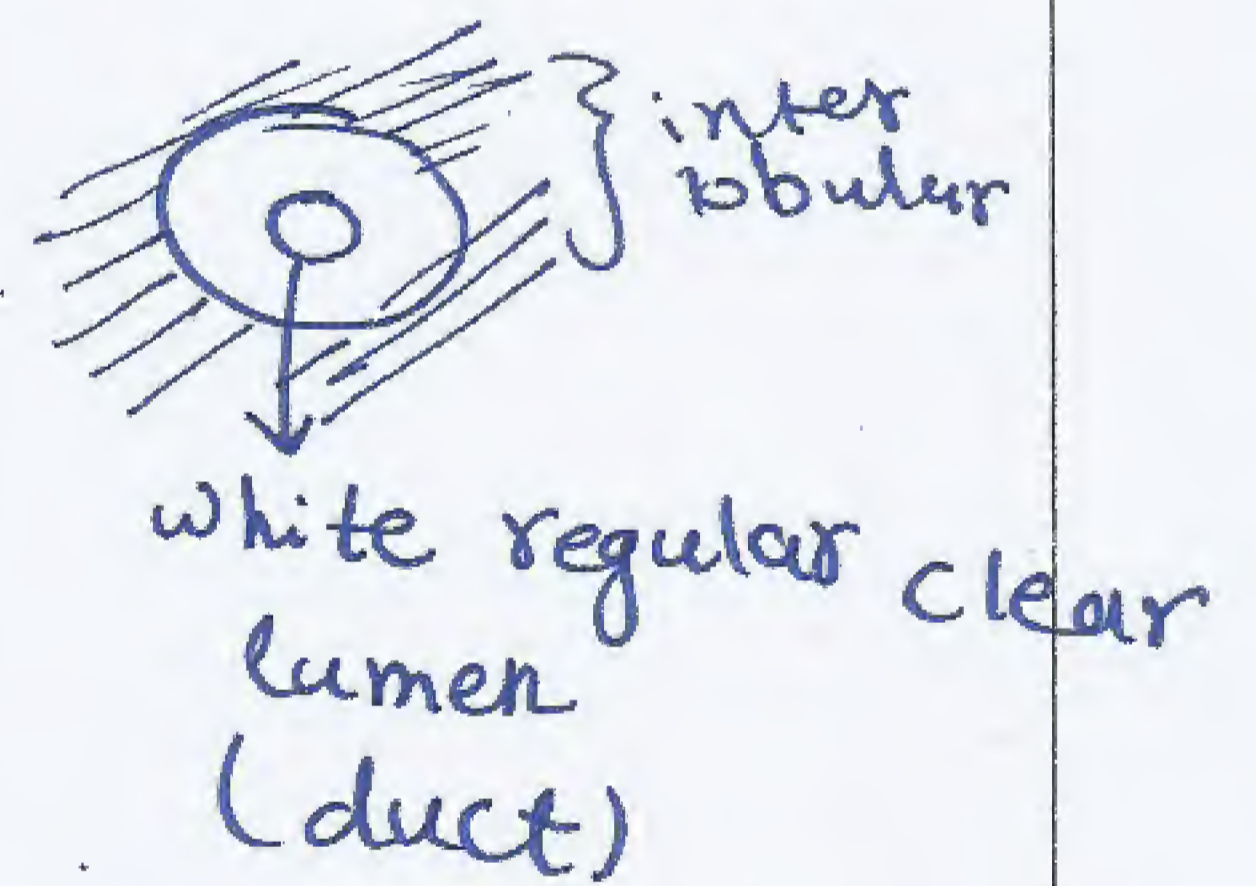 inter
lobular
white regular clear
lumen
(duct)